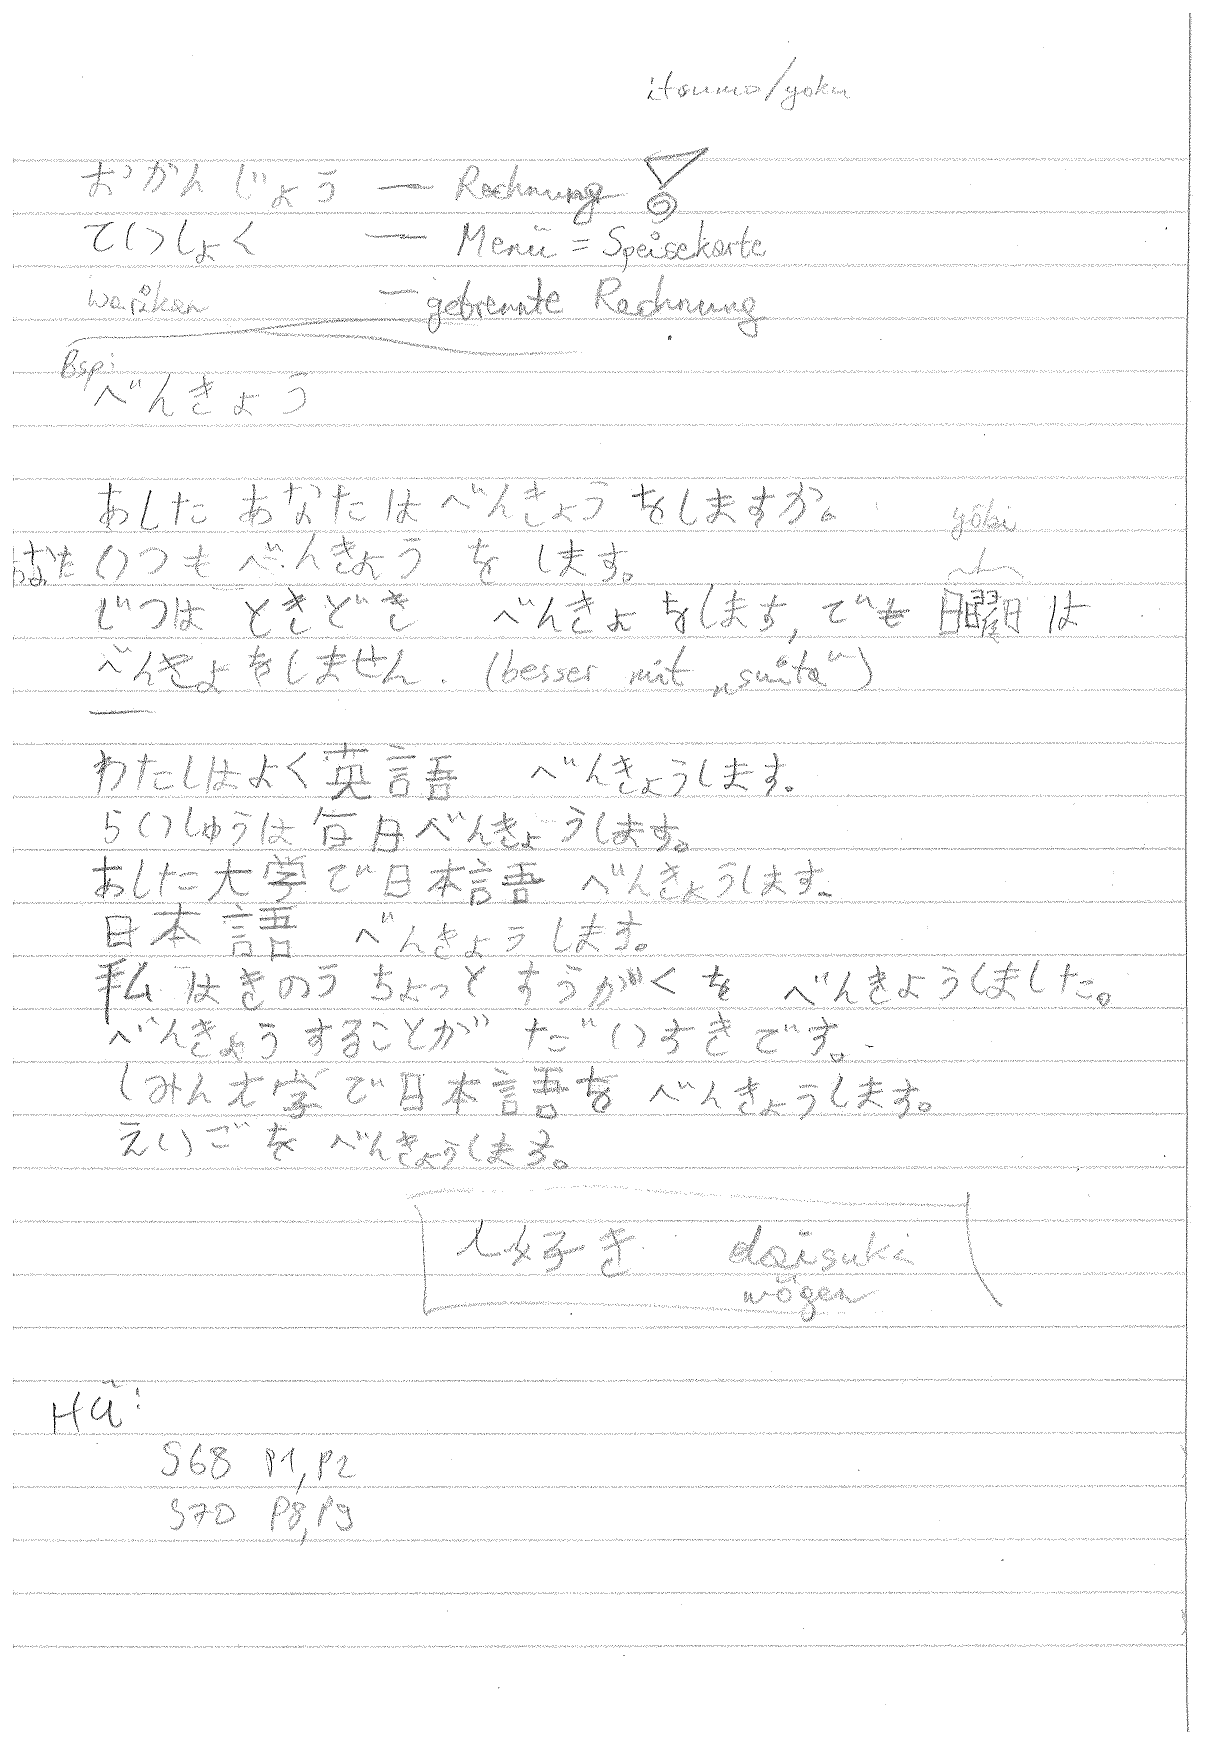 itsumo/yoku
おかんじょう — Rechnung
ていしょく — Menü = Speisekarte
warikan — getrennte Rechnung
Bsp:
べんきょう
あした あなたは べんきょう をしますか。
yōbi
あなた いつも べんきょう を します。
じつは ときどき べんきょ をします, でも 日曜日 は
べんきょをしません. (besser mit „suita")
わたしはよく英語 べんきょうします。
らいしゅうは毎日べんきょうします。
あした大学で日本語 べんきょうします.
日本語 べんきょうします。
私はきのう ちょっと すうがくを べんきょうしました。
べんきょうすることが だいすきです。
しみん大学で日本語を べんきょうします。
えいごを べんきょうします。
好き daisuki
mögen
HÜ:
S68 P1, P2
S70 P8, P9